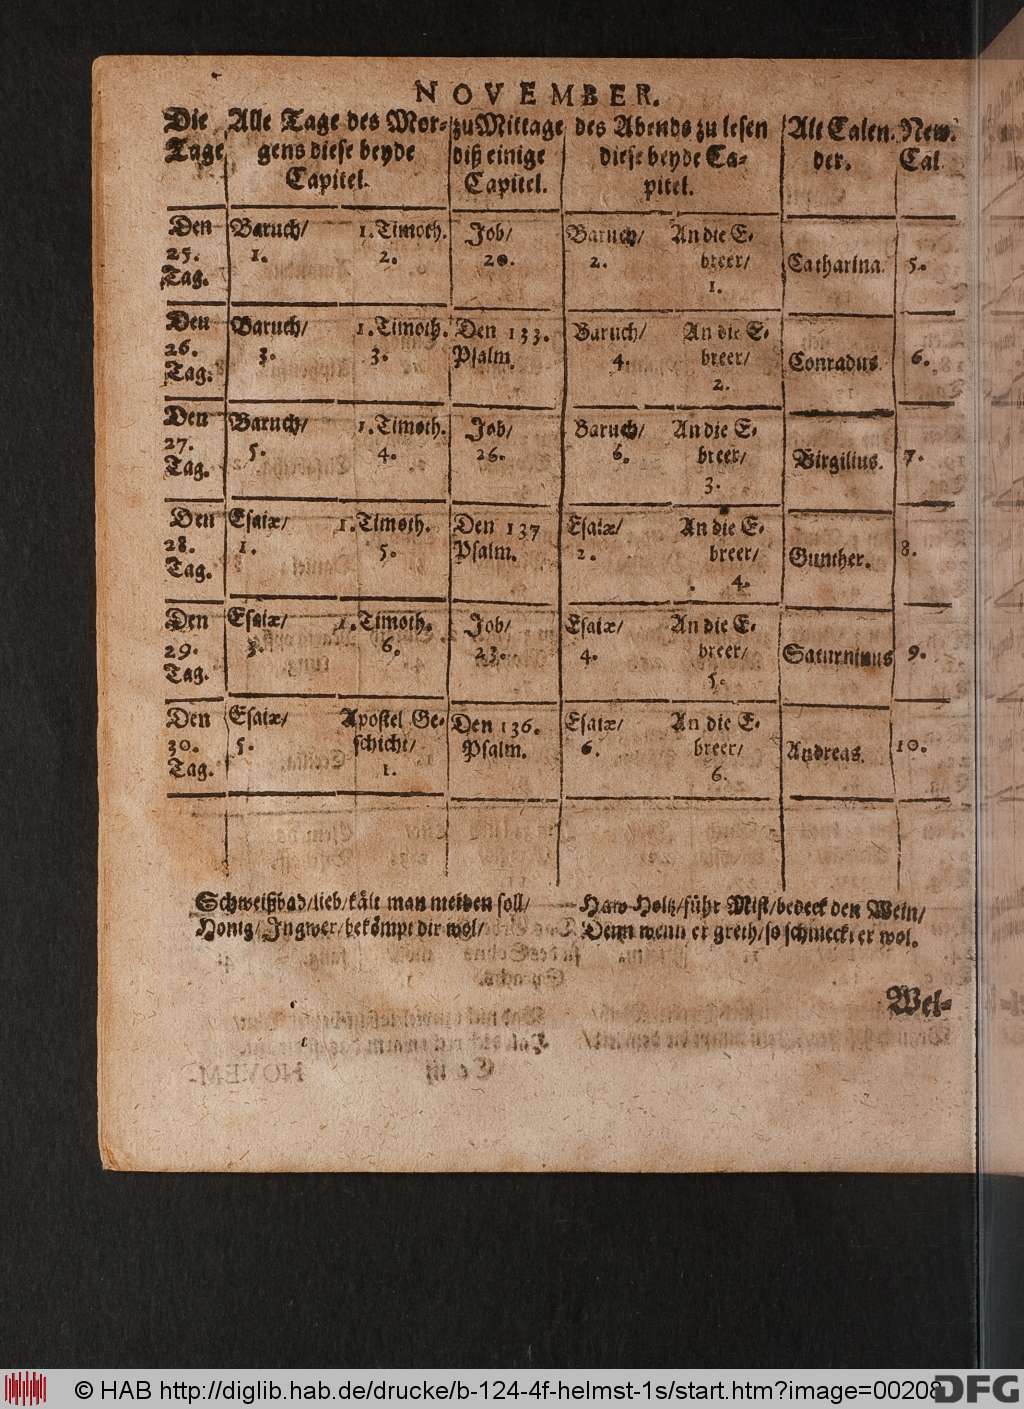 NOVEMBER.
Die Alle Tage des Mor- zu Mittage des Abends zu lesen Alt Calen. New.
Tage gens diese beyde diß einige diese beyde Ca- der. Cal
Capitel. Capitel. pitel.
Den Baruch/ 1. Timoth. Job/ Baruch/ An die E-
25. 1. 2. 20. 2. breer/ Catharina. 5.
Tag. 1.
Den Baruch/ 1. Timoth. Den 133. Baruch/ An die E-
26. 3. 3. Psalm. 4. breer/ Conradus. 6.
Tag. 2.
Den Baruch/ 1. Timoth. Job/ Baruch/ An die E-
27. 5. 4. 26. 6. breer/ Virgilius. 7.
Tag. 3.
Den Esaiæ/ 1. Timoth. Den 137 Esaiæ/ An die E-
28. 1. 5. Psalm. 2. breer/ Gunther. 8.
Tag. 4.
Den Esaiæ/ 1. Timoth. Job/ Esaiæ/ An die E-
29. 3. 6. 23. 4. breer/ Saturninus 9.
Tag. 5.
Den Esaiæ/ Apostel Ge- Den 136. Esaiæ/ An die E-
30. 5. schicht/ Psalm. 6. breer/ Andreas. 10.
Tag. 1. 6.
Schweißbad/lieb/kält man meiden soll/ Haw Holtz/führ Mist/bedeck den Wein/
Honig/Jngwer/bekömpt dir wol/ Denn wenn er greth/so schmeckt er wol.
Wel-
© HAB http://diglib.hab.de/drucke/b-124-4f-helmst-1s/start.htm?image=00208
DFG